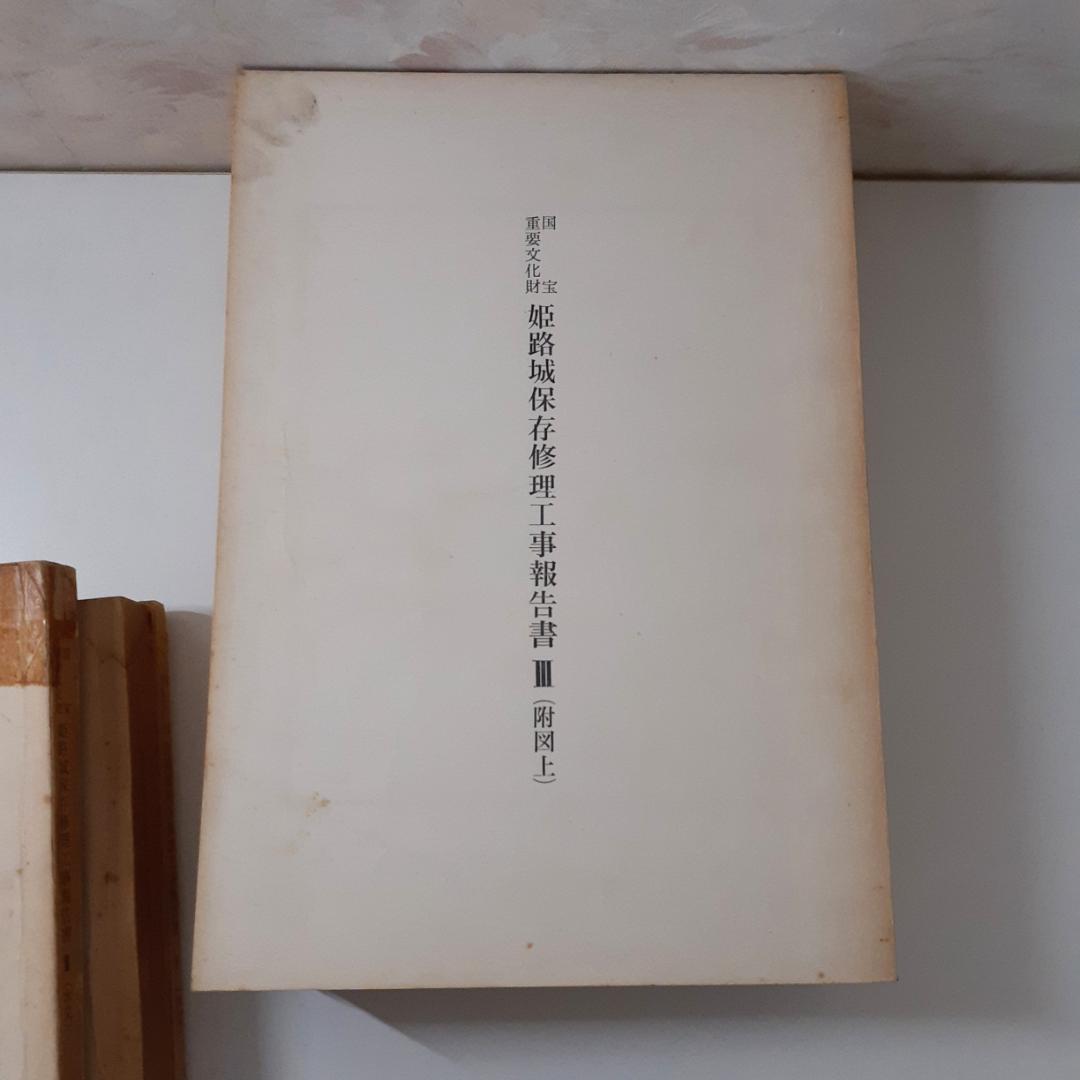 国宝
重要文化財
姫路城保存修理工事報告書 III (附図上)